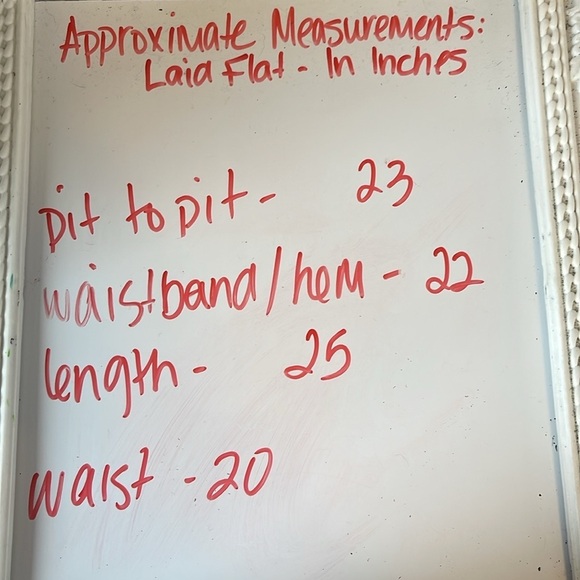 Approximate Measurements:
Laid Flat - In Inches
pit to pit - 23
waistband/hem - 22
length - 25
waist - 20